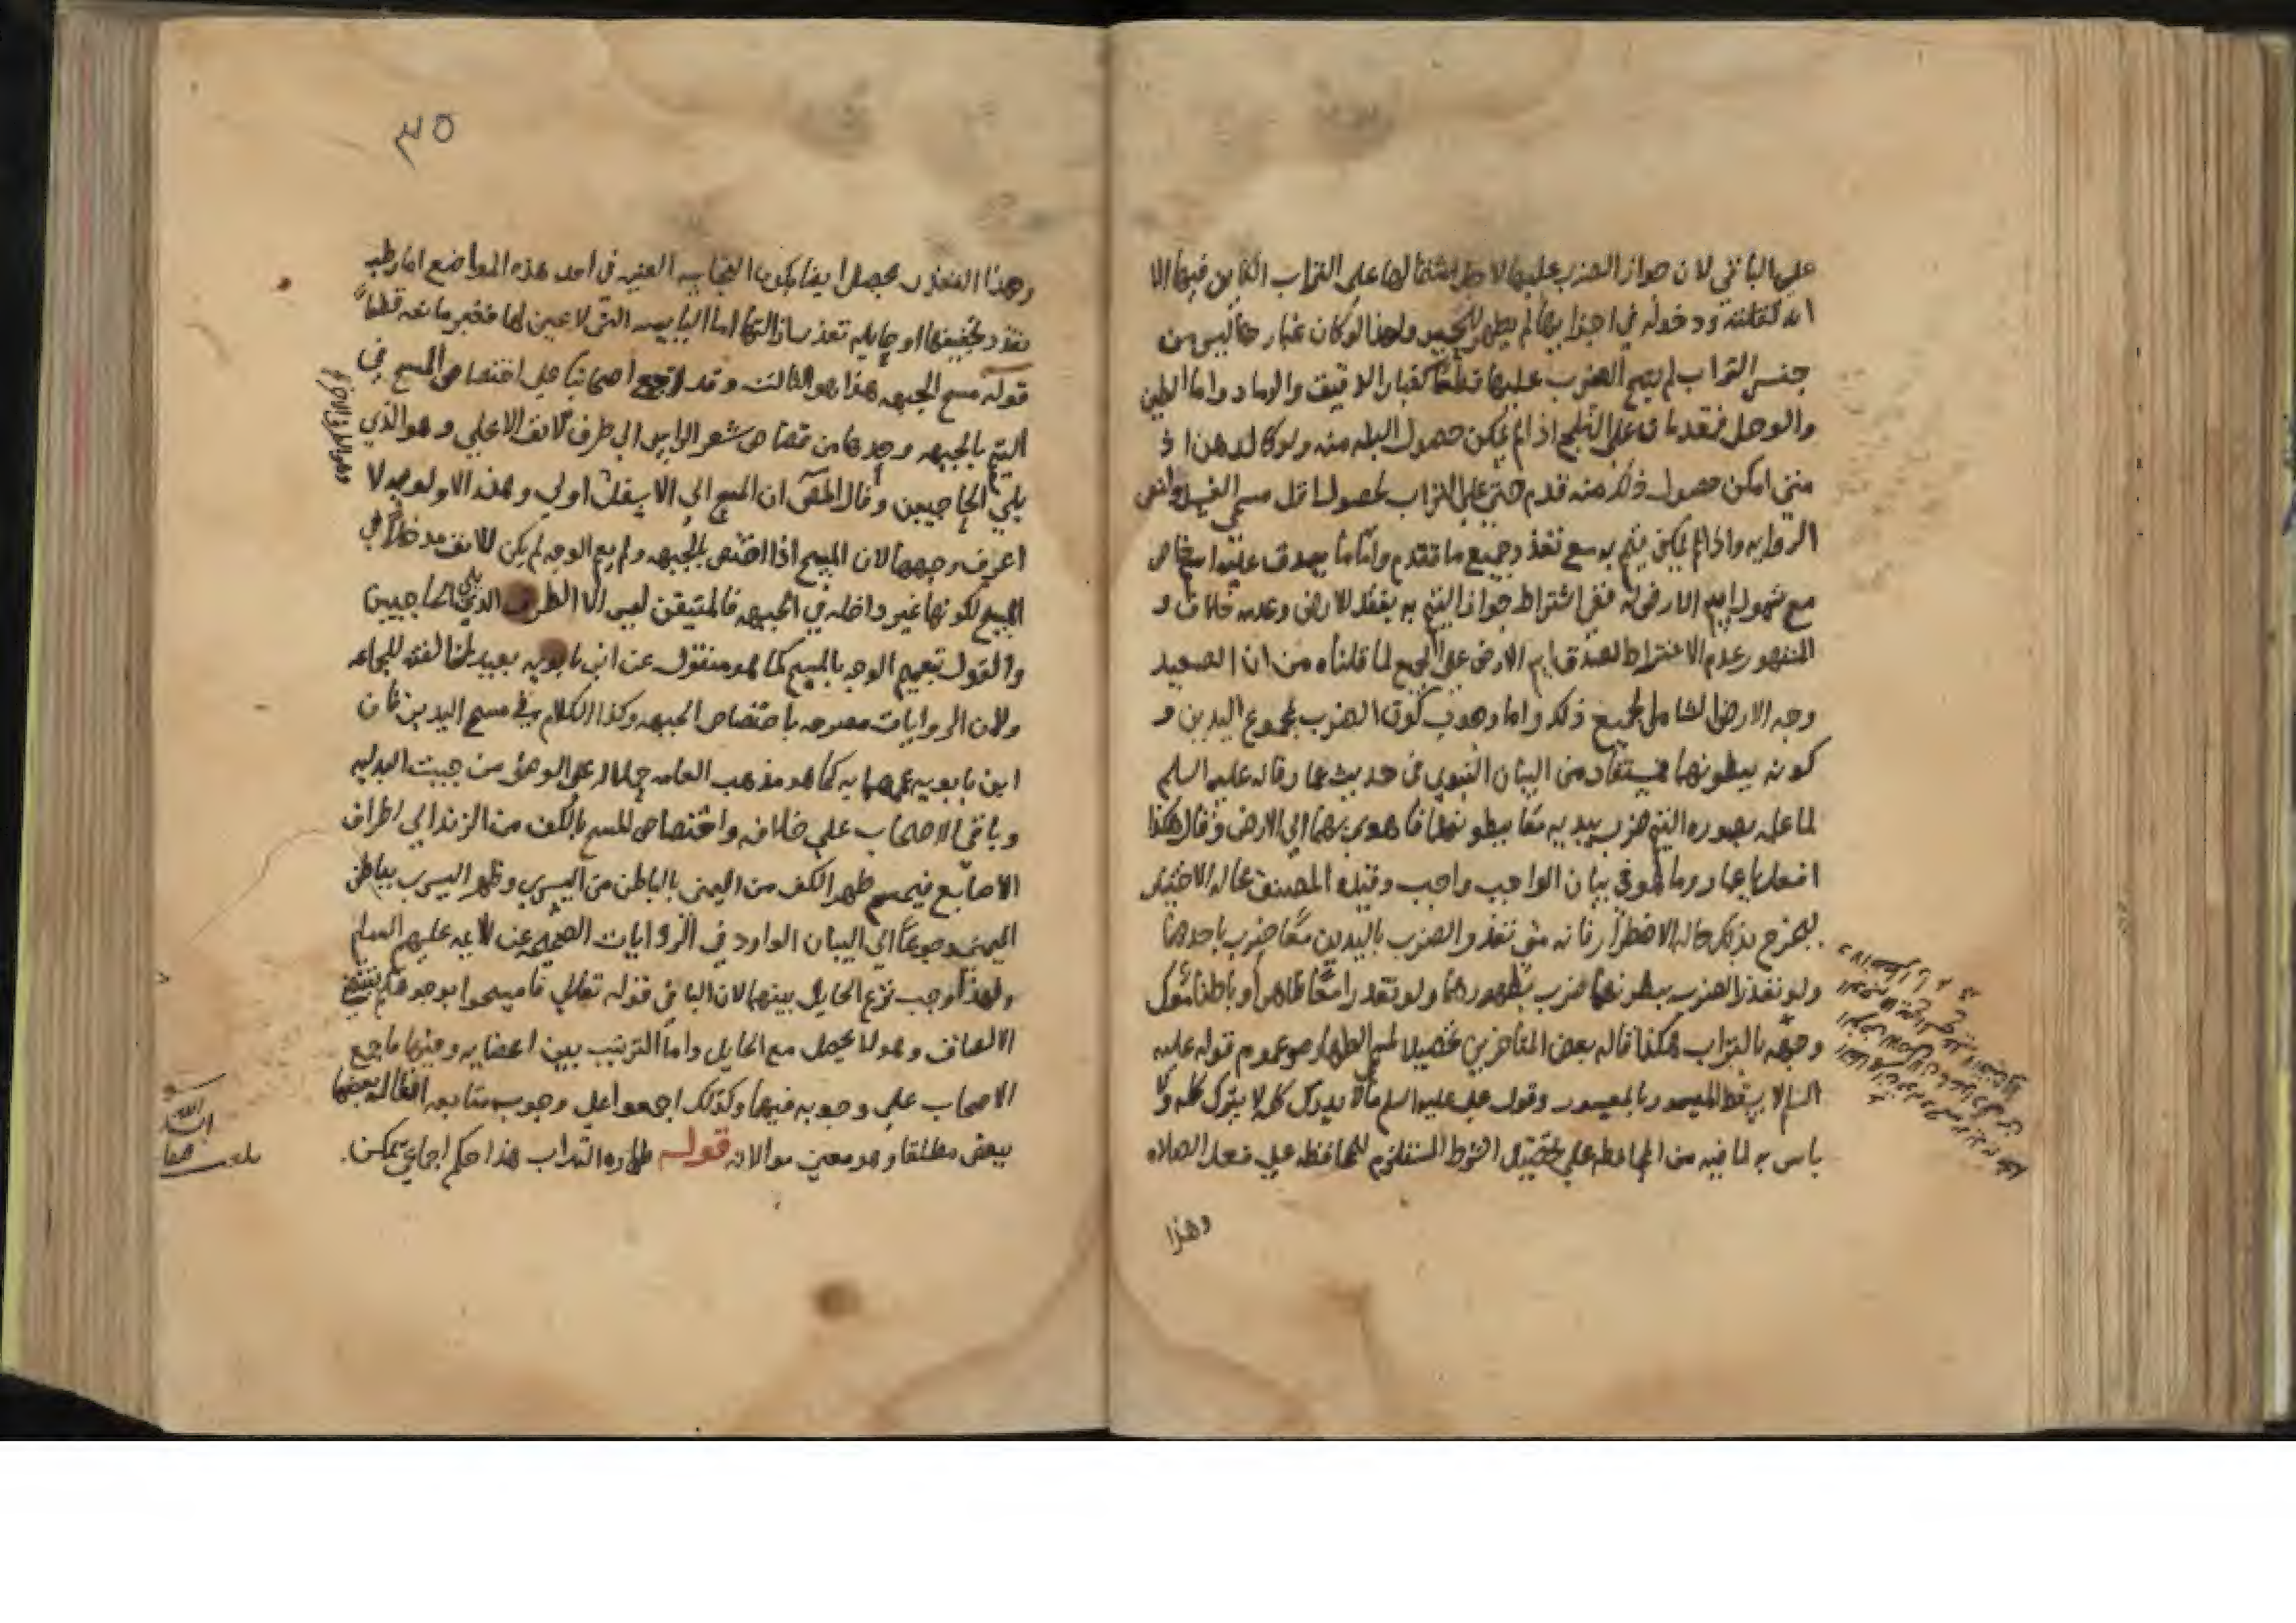 على الباقي لان جواز الضرب عليها لاجل اشتمالها على التراب الكاين فيها الا
انه لقلته ودخوله في اجزايها لم يظهر للحس ولهذا لو كان غبارها ليس من
جنس التراب لم يصح الضرب عليها قطعا كغبار الدقيق والرماد واما الطين
والوحل فقدمنا على الثلج اذا لم يمكن حصول البله منه ولو كالدهن اذ
متى امكن حصول ذلك منه قدم حتى على التراب لحصول اقل مسمى الغسل
الروايه واذا لم يمكن يتيمم به مع تعذر جميع ما تقدم واما ما يصدق عليه اسم خاص
مع شمول اسم الارض له ففي اشتراط جواز التيمم به بفقد الارض وعدمه خلاف و
المشهور عدم الاشتراط لصدق اسم الارض على الجميع لما قلناه من ان الصعيد
وجه الارض الشامل لجميع ذلك واما وجوب كون الضرب بمجموع اليدين و
كونه ببطونهما فيستفاد من البيان النبوي في حديث عمار فانه عليه السلم
لما علمه بصوره التيمم ضرب بيديه معا ببطونهما فاهوى بهما الى الارض وقال هكذا
افعل يا عمار وما هو في بيان الواجب واجب وقيده المصنف بحاله الاختيار
ليخرج بذلك حاله الاضطرار فانه متى تعذر الضرب باليدين معا ضرب باحدهما
ولو تعذر الضرب ببطونهما ضرب بظهورهما ولو تعذرا معا ظاهرا وباطنا معك
وجهه بالتراب هكذا قاله بعض المتاخرين تحصيلا لمسمى الطهاره وعموم قوله عليه
السلم لا يسقط الميسور بالمعسور وقول علي عليه السلم ما لا يدرك كله لا يترك كله ولا
باس به لما فيه من المحافظه على تحصيل الشرط المستلزم للمحافظه على فعل الصلاه
وهذا
٣٥
وهذا التعذر يحصل ايضا بكون النجاسه العينيه في احد هذه المواضع اما رطبه
تعذر تجفيفها او حايله تعذرت ازالتها اما اليابسه التي لا عين لها فغير مانعه قطعا
قوله مسح الجبهه هذا هو الثالث وقد اجمع اصحابنا على اختصاص المسح في
التيمم بالجبهه وحدها من قصاص شعر الراس الى طرف الانف الاعلى وهو الذي
يلي الحاجبين وقال المص ان المسح الى الاسفل اولى وهذه الاولويه لا
اعرف وجهها لان المسح اذا اختص بالجبهه ولم يعم الوجه لم يكن للانف مدخل في
المسح لكونها غير داخله في الجبهه فالمتيقن ليس الا الطرف الذي يلي الحاجبين
والقول بتعميم الوجه بالمسح كما هو منقول عن ابن بابويه بعيد لمخالفته للجماعه
ولان الروايات مصرحه باختصاص الجبهه وكذا الكلام في مسح اليدين فان
ابن بابويه عمهما به كما هو مذهب العامه حملا له على الوضوء من حيث البدليه
وباقي الاصحاب على خلافه واختصاص المسح بالكف من الزند الى اطراف
الاصابع فيمسح ظهر الكف من اليمنى بالباطن من اليسرى وظهر اليسرى بباطن
اليمنى رجوعا الى البيان الوارد في الروايات الصحيحه عن الائمه عليهم السلم
ولهذا وجب نزع الحايل بينهما لان الباء في قوله تعالى فامسحوا بوجوهكم تقتضي
الالصاق وهو لا يحصل مع الحايل واما الترتيب بين اعضايه وفيها فاجمع
الاصحاب على وجوبه فيها وكذلك اجمعوا على وجوب متابعه افعاله بعضها
ببعض مطلقا وهو معنى موالاته قوله طهاره التراب هذا حكم اجماعي تمكن.